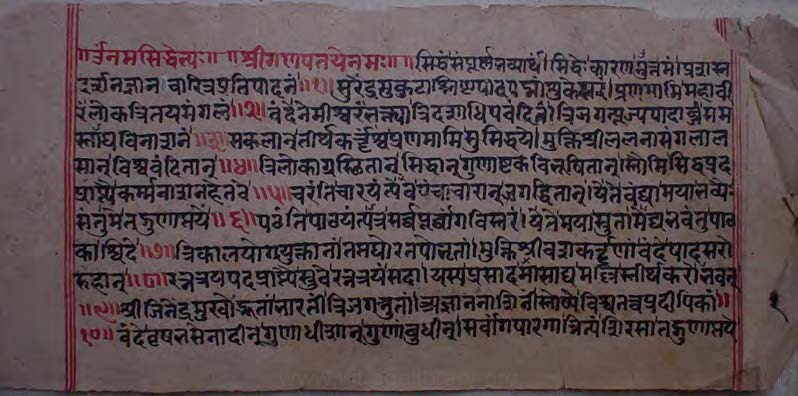 ॥ र्उनमः सिद्धेभ्यः ॥ ॥ श्रीगणपतये नमः ॥ ॥ सिद्धं संपूर्णभव्यार्थं । सिद्धेः कारणमुत्तमं । प्रशस्त
दर्शनज्ञान चारित्रप्रतिपादनं ॥ १॥ सुरेंद्रमुकुटाश्लिष्टपादपद्मांशुकेसरं । प्रणमामि महावी
रं लोकत्रितयमंगलं ॥ २॥ वंदे नेमीश्वरं भक्त्या । त्रिदशाधिपवंदितं । त्रिजगत्पूज्यपादाब्जं मम
स्ताघविनाशनं ॥ ३॥ सकलान् तीर्थकर्तृंश्च प्रणमामि सुसिद्धये । मुक्तिश्रीललनासंगलाल
सान् विश्ववंदितान् ॥ ४॥ त्रिलोकाग्रस्थितान् सिद्धान् गुणाष्टकविभूषितान् । स्तौमि सिद्धपद
प्राप्त्यै कर्मनाशनहेतवे ॥ ५॥ चरंति चारयंत्येवं पंचाचारान् जगद्धितान् । ये ते वंद्या मया भव्यैः
संतु मे तद्गुणाप्तये ॥ ६॥ पठंति पाठयंत्यत्र सर्वपूर्वांगविस्तरं । यं ते मया स्तुता मेद्य भवंतु पाठ
का श्चिदे ॥ ७॥ त्रिकालयोगयुक्तानां तमघोरतपोभृतां । मुक्तिश्रीवशकर्तृणां वंदे पादसरो
रुहान् ॥ ८॥ रत्नत्रयपदप्राप्त्यै स्तुवे रत्नत्रयं सदा । यस्य प्रसादमासाद्य मल्लिस्तीर्थकरोभवत्
॥ ९॥ श्रीजिनेंद्रमुखोद्भूतां भारतीं त्रिजगन्नुतां । अज्ञाननाशिनीं स्तोष्ये विश्वतत्त्वप्रदीपिकां ॥
१०॥ वंदे वृषभसेनादीन् गुणाधीशान् गुणांबुधीन् । सर्वांगपारगान्नित्यं शिरसा तद्गुणाप्तये